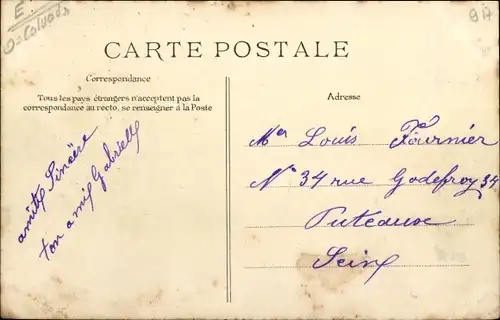 E
O=Calvados
9A
CARTE POSTALE
Correspondance
Tous les pays étrangers n'acceptent pas la
correspondance au recto, se renseigner à la Poste
Adresse
amitié Sincère
ton ami Gabriell
Mer Louis Fournier
N° 34 rue Godefroy 34
Puteaux
Seine